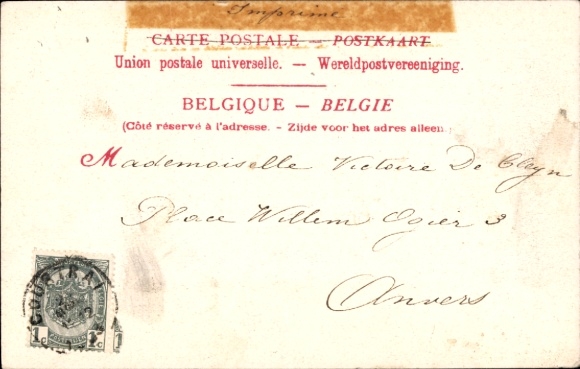 Imprimé
CARTE POSTALE — POSTKAART
Union postale universelle. — Wereldpostvereeniging.
BELGIQUE — BELGIE
(Côté réservé à l'adresse. - Zijde voor het adres alleen.)
Mademoiselle Victoire De Cleyn
Place Willem Ogier 3
Anvers
COURTRAI
1c 1c
1